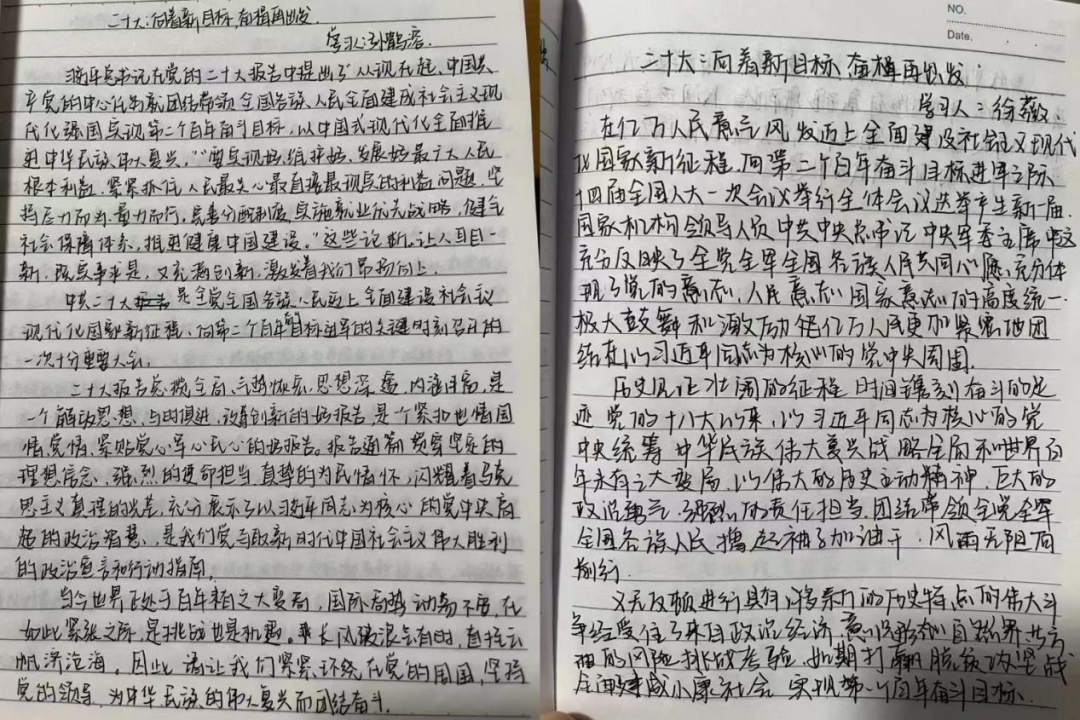 二十大:向着新目标,奋楫再出发.
学习人:孙鹤容.
习近平总书记在党的二十大报告中提出了"从现在起,中国共
产党的中心任务就是团结带领全国各族人民全面建成社会主义现
代化强国实现第二个百年奋斗目标,以中国式现代化全面推
进中华民族伟大复兴,""要实现好,维护好,发展好最广大人民
根本利益,紧紧抓住人民最关心最直接最现实的利益问题,坚
持尽力而为、量力而行,完善分配制度,实施就业优先战略,健全
社会保障体系,推进健康中国建设。"这些论断,让人耳目一
新,既实事求是,又充满创新,激发着我们昂扬向上.
中共二十大是全党全国各族人民迈上全面建设社会主义
现代化国家新征程、向第二个百年奋斗目标进军的关键时刻召开的
一次十分重要大会.
二十大报告总揽全局、气势恢宏、思想深邃、内涵丰富,是
一个解放思想、与时俱进、改革创新的好报告,是个紧扣世情国
情党情,紧贴党心军心民心的好报告。报告通篇贯穿坚定的
理想信念、强烈的使命担当、真挚的为民情怀,闪耀着马克
思主义真理的光芒,充分展示了以习近平同志为核心的党中央高
超的政治智慧,是我们党夺取新时代中国社会主义伟大胜利
的政治宣言和行动指南.
当今世界正处于百年未有之大变局,国际局势动荡不安,在
如此紧张之际,是挑战也是机遇。乘长风破浪会有时,直挂云
帆济沧海。因此,请让我们紧紧环绕在党的周围,坚持
党的领导,为中华民族的伟大复兴而团结奋斗.
NO.
Date.
二十大:向着新目标 奋楫再出发:
学习人:徐薇.
在亿万人民意气风发迈上全面建设社会主义现代
化国家新征程、向第二个百年奋斗目标进军之际
十四届全国人大一次会议举行全体会议选举产生新一届
国家机构领导人员 中共中央总书记 中央军委主席 这
充分反映了全党全军全国各族人民共同心愿,充分体
现了党的意志,人民意志 国家意志的高度统一.
极大鼓舞和激励 亿万人民更加紧密地团
结在以习近平同志为核心的党中央周围.
历史见证壮阔的征程 时间镌刻奋斗的足
迹 党的十八大以来,以习近平同志为核心的党
中央统筹中华民族伟大复兴战略全局和世界百
年未有之大变局,以伟大的历史主动精神、巨大的
政治勇气、强烈的责任担当 团结带领全党全军
全国各族人民撸起袖子加油干、风雨无阻向
前行.
义无反顾进行具有许多新的历史特点的伟大斗
争经受住了来自政治经济,意识形态 自然界等方
面的风险挑战考验 如期打赢脱贫攻坚战
全面建成小康社会 实现第一个百年奋斗目标.